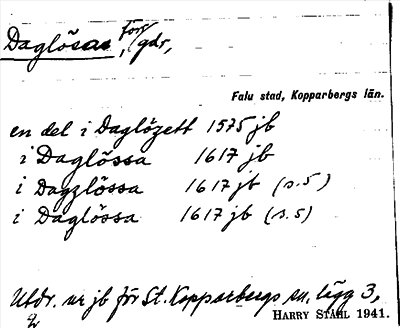 Daglösa, förr gdr,
Falu stad, Kopparbergs län.
en del i Daglözett 1575 jb
i Daglössa 1617 jb
i Dagzlössa 1617 jb (s.5)
i Daglössa 1617 jb (s.5)
Utdr. ur jb för St. Kopparbergs sn. lägg 3,
HARRY STÅHL 1941.